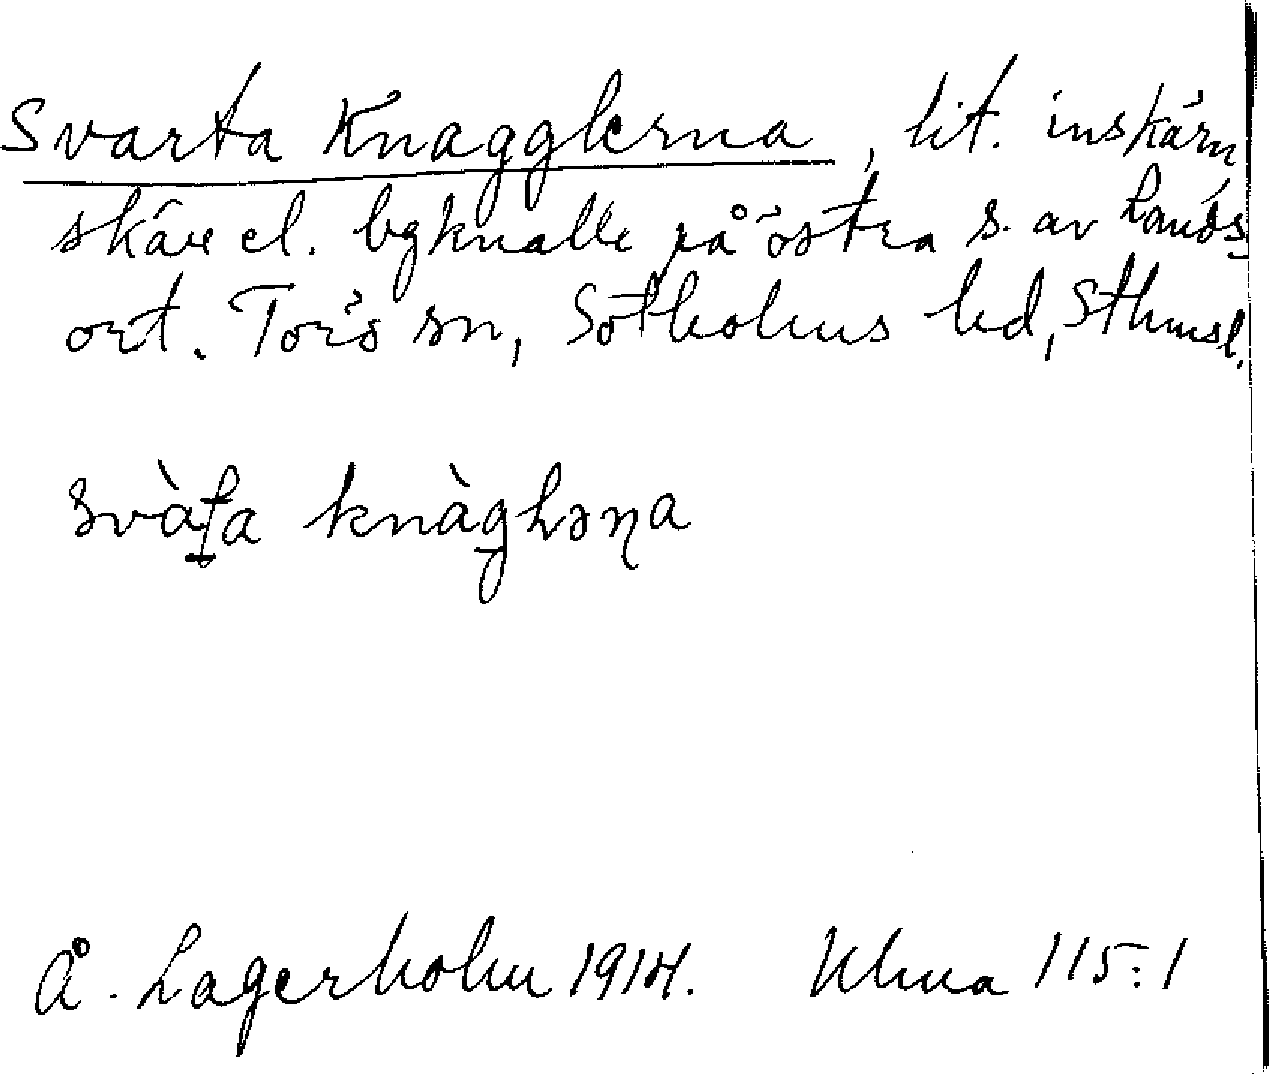 Svarta Knagglerna, lit. inskärn
skäre el. bgknalle på östra s. av Lands
ort. Torö sn, Sotholms hd, Sthmsl.
svàṯa knàgləɳa
Å. Lagerholm 1914. Ulma 115:1